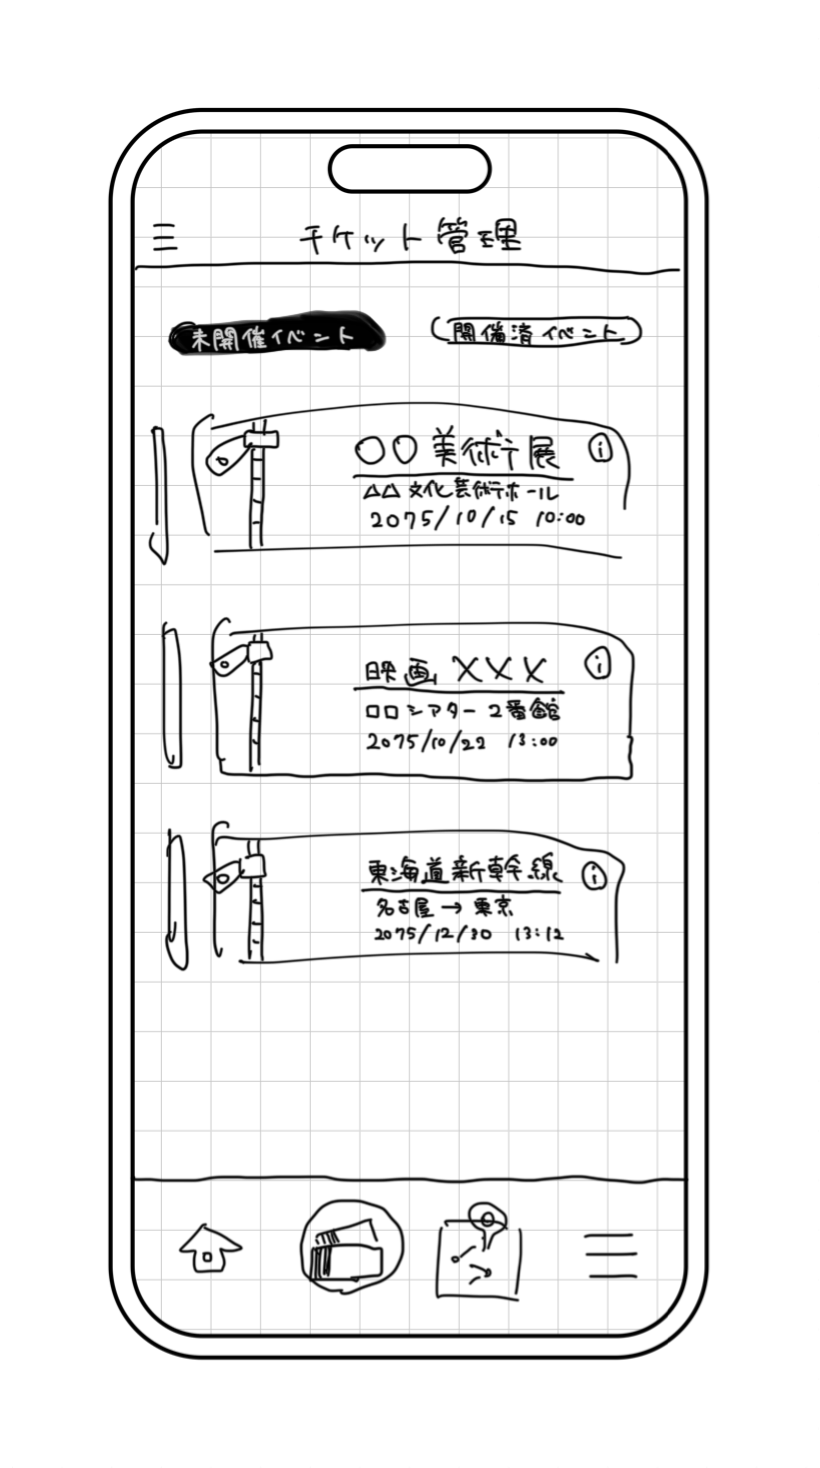 チケット管理
未開催イベント
開催済イベント
〇〇美術展
i
△△文化芸術ホール
2075/10/15 10:00
映画 XXX
i
□□シアター 2番館
2075/10/22 13:00
東海道新幹線
i
名古屋→東京
2075/12/30 13:12